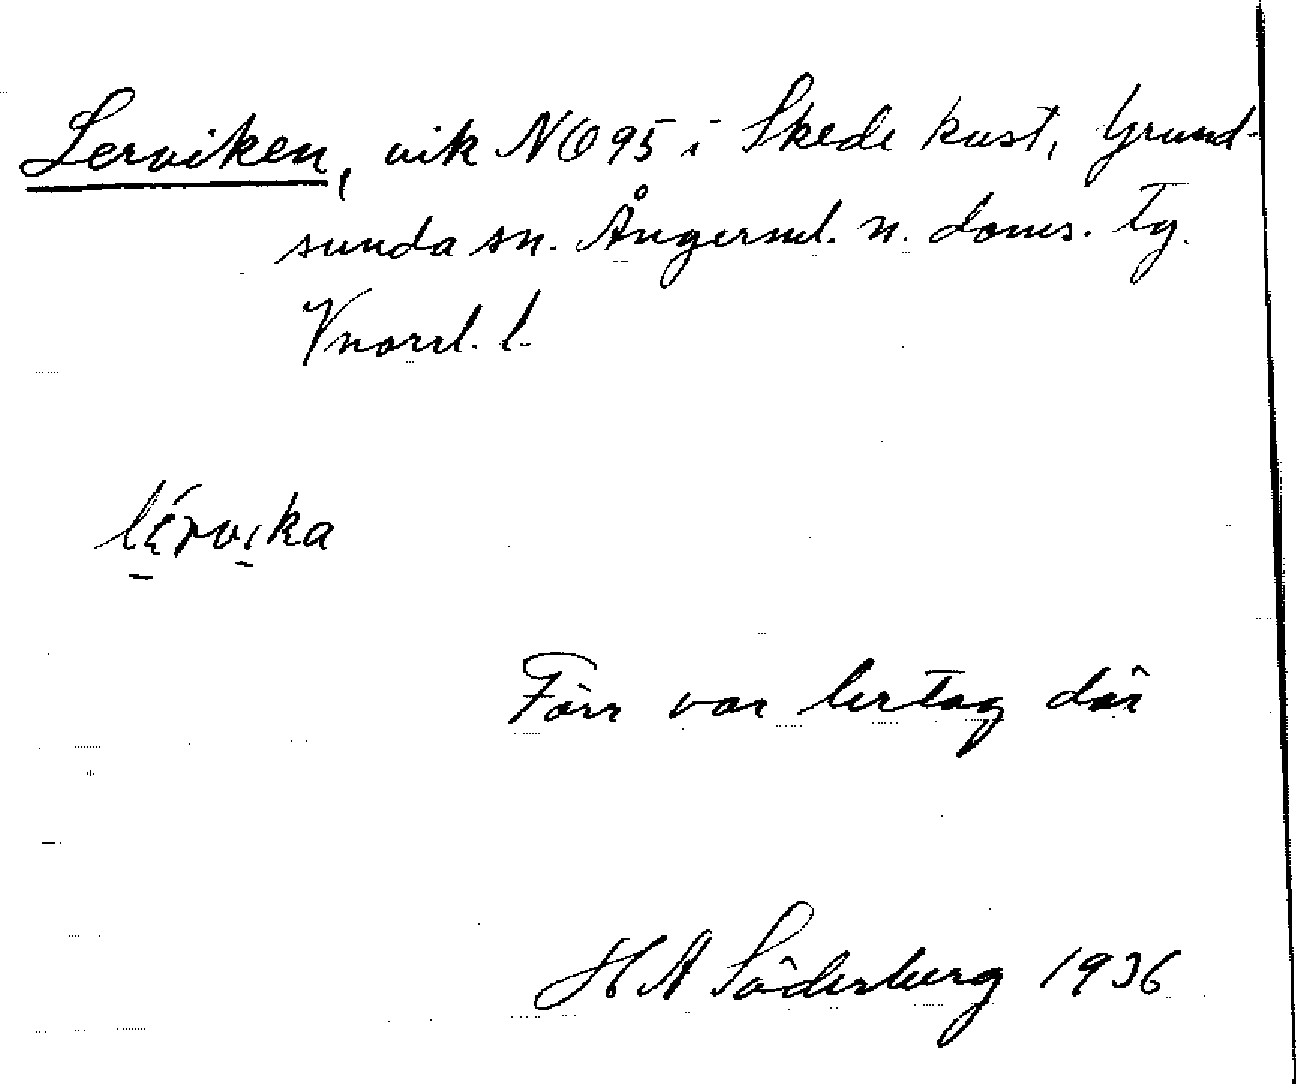 Lerviken, vik NO 95 i Skede kust, Grund-
sunda sn. Ångerml. n. doms. tg.
Vnorrl. l.
lérvika
Förr var lertag där
H A Söderberg 1936